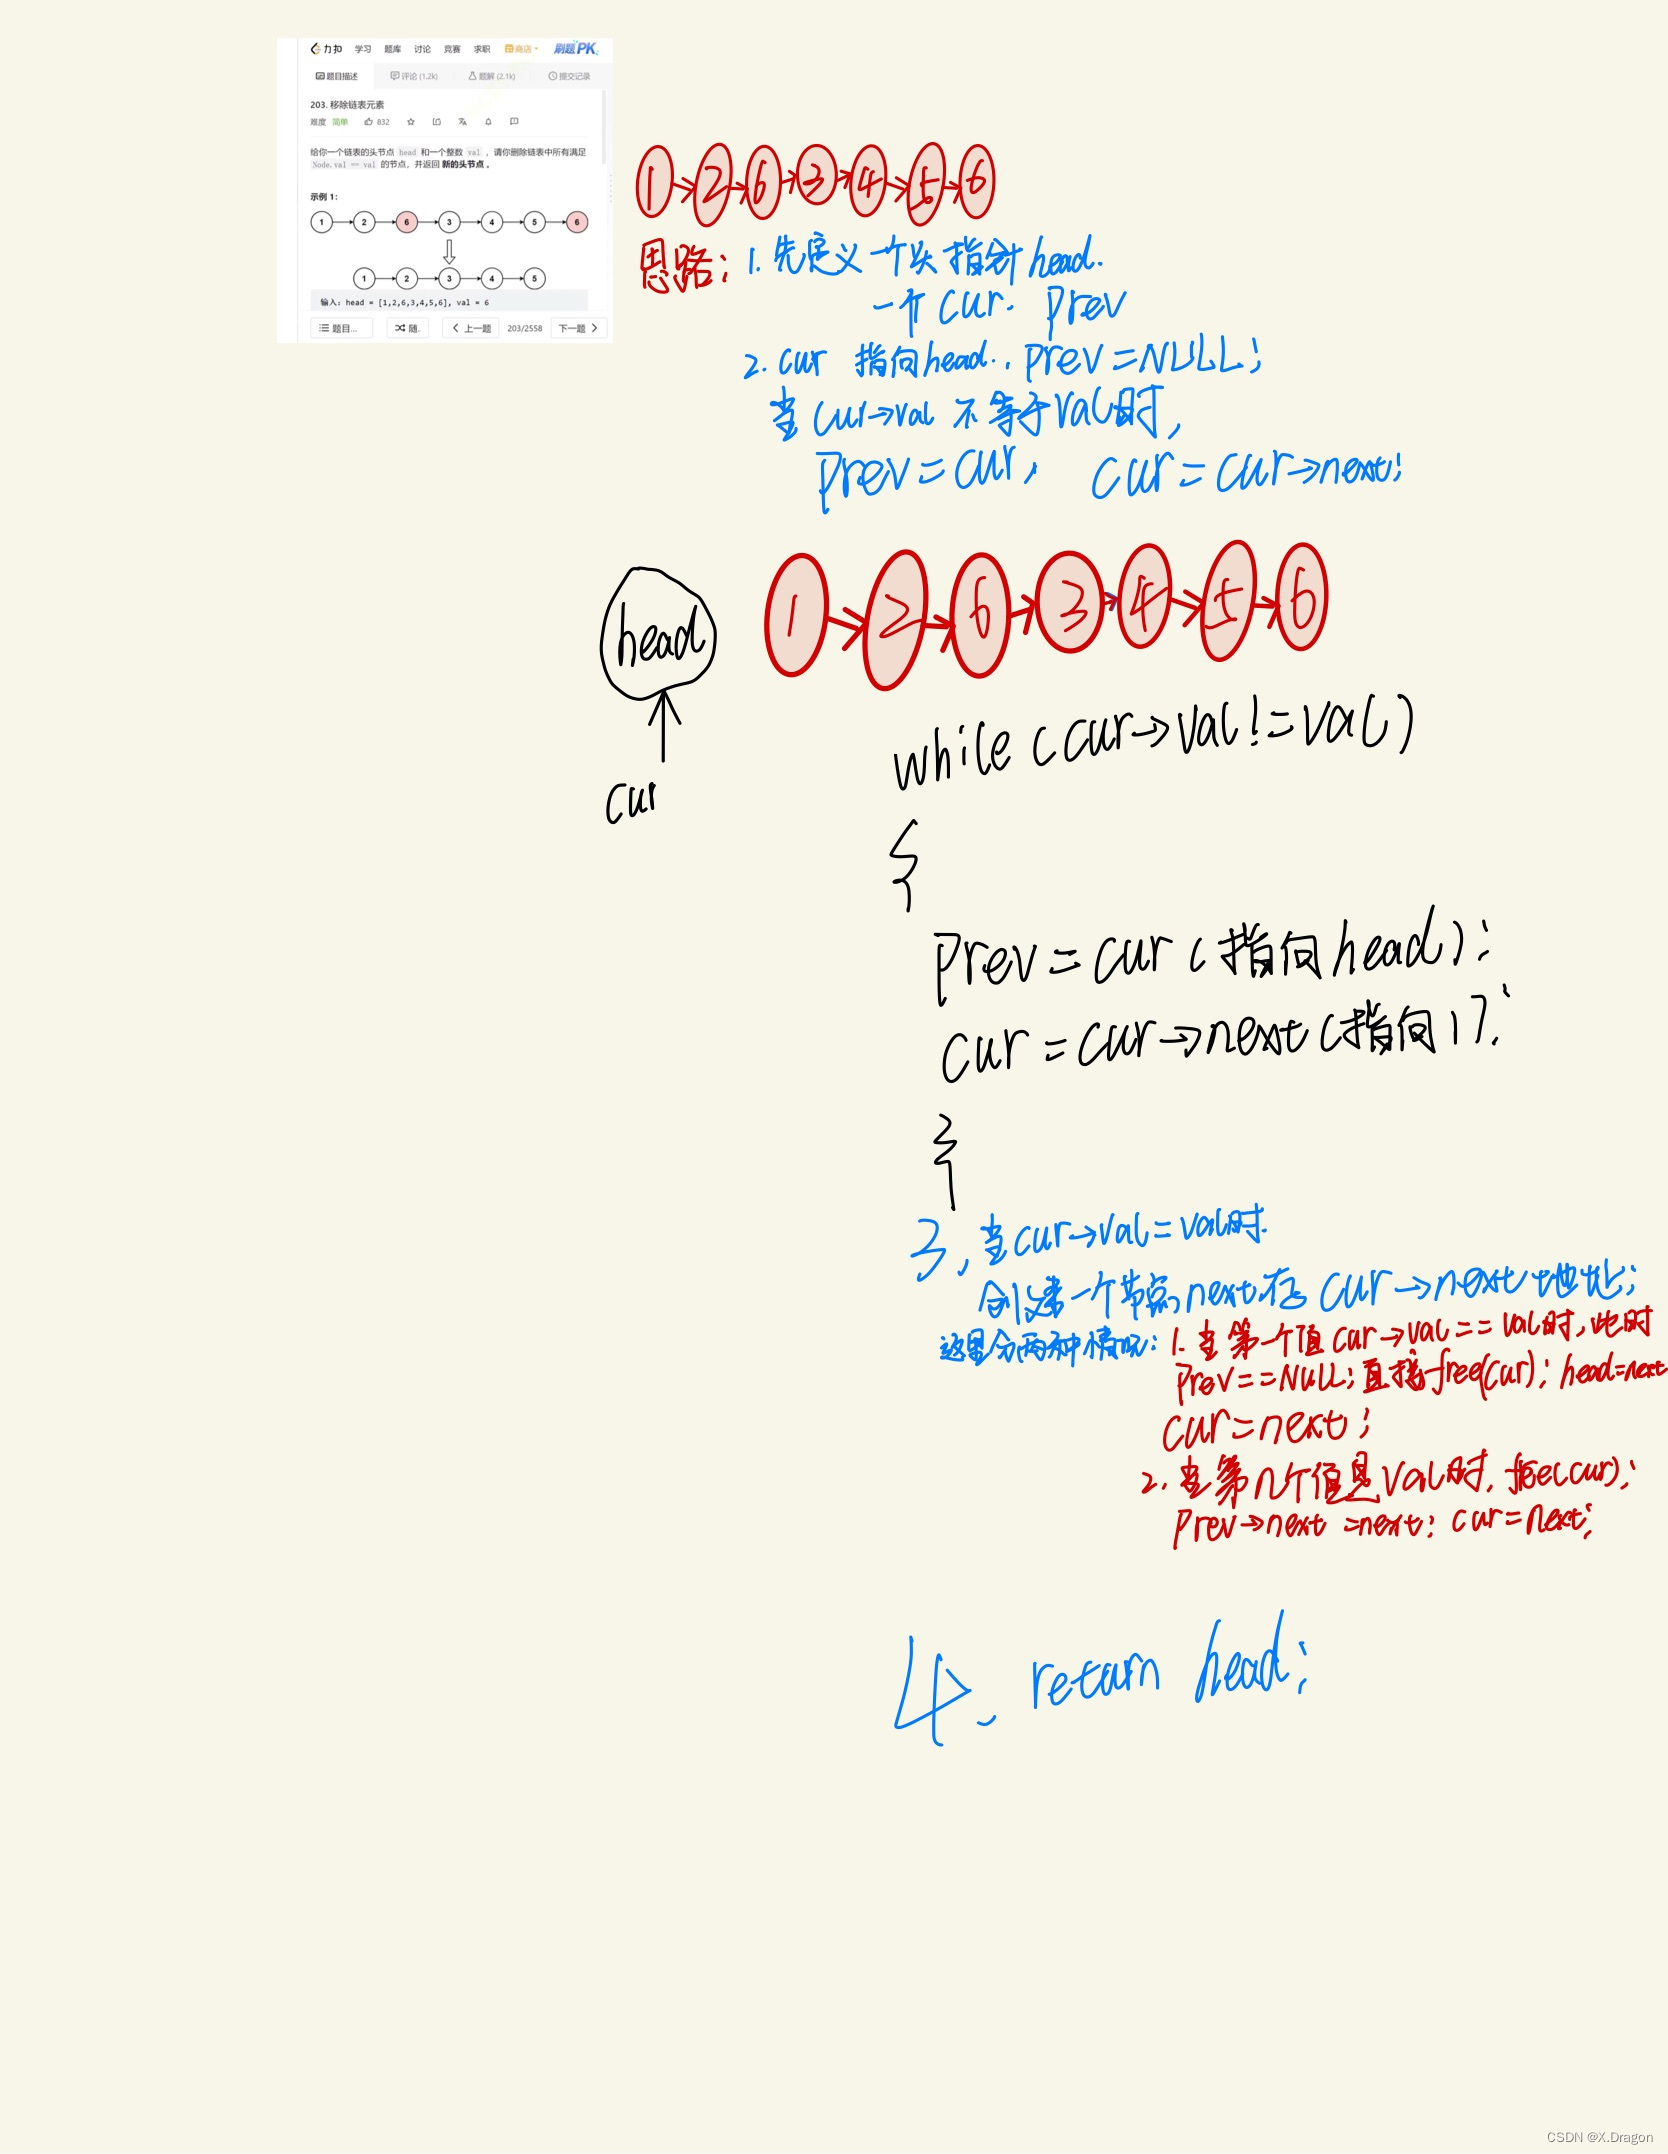 力扣 学习 题库 讨论 竞赛 求职 商店 刷题PK
题目描述 评论 (1.2k) 题解 (2.1k) 提交记录
203. 移除链表元素
难度 简单 832
给你一个链表的头节点 head 和一个整数 val ，请你删除链表中所有满足
Node.val == val 的节点，并返回 新的头节点 。
示例 1：
1 2 6 3 4 5 6
1 2 3 4 5
输入：head = [1,2,6,3,4,5,6], val = 6
题目... 随. 上一题 203/2558 下一题
1→2→6→3→4→5→6
思路：1. 先定义一个头指针head.
一个cur. prev
2. cur 指向head.. prev=NULL;
当cur→val 不等于val时,
prev=cur, cur=cur→next;
head 1→2→6→3→4→5→6
cur
while (cur→val!=val)
{
prev=cur (指向head);
cur=cur→next (指向1);
}
3, 当cur→val=val时.
创建一个节点next存 cur→next地址;
这里分两种情况: 1. 当第一个值cur→val==val时, 此时
prev==NULL; 直接free(cur); head=next
cur=next;
2, 当第n个值是val时, free(cur);
prev→next=next; cur=next;
4、return head;
CSDN @X.Dragon